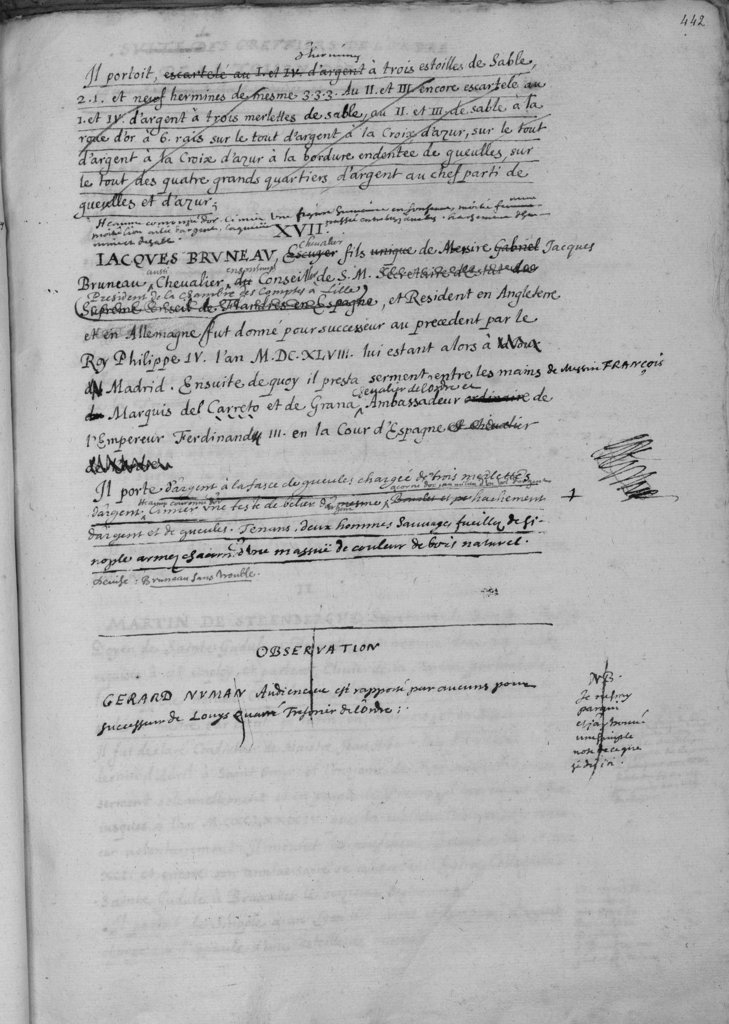 442
d'hermines
Il portoit, escartelé au I. et IV. d'argent à trois estoilles de Sable,
2.1. et neuf hermines de mesme 3.3.3. Au II. et III encore escartelé au
I. et IV. d'argent à trois merlettes de sable, au II. et III de sable à la
rque d'or à 6. rais sur le tout d'argent à la Croix d'azur, sur le tout
d'argent à la Croix d'azur à la bordure endentée de gueulles, sur
le tout des quatre grands quartiers d'argent au chef parti de
gueulles et d'azur;
Heaume couronné d'or. Cimier Une
moitié lion ailé d'argent
XVII.
Chevalier
IACQVES BRUNEAU, Escuyer fils unique de Messire Gabriel Jacques
aussi
Bruneau, Chevalier, du Conseil de S. M. Secretaire
President de la Chambre des Comptes à Lille
Supreme Conseil de Flandres en Espagne, et Resident en Angleterre
et en Allemagne fut donné pour successeur au precedent par le
Roy Philippe IV. l'an M.DC.XLVIII. lui estant alors à
Madrid. Ensuite de quoy il presta serment entre les mains de Messire FRANÇOIS
Chevalier de l'Ordre et
Marquis del Carreto et de Grana, Ambassadeur ordinaire de
l'Empereur Ferdinand III. en la Cour d'Espagne et Chevalier
Il porte d'argent à la fasce de gueules chargée de trois merlettes
d'argent, Cimier Une teste de belier de mesme, Bourlet et hachement
d'argent et de gueules. Tenans, deux hommes Sauvages fueillez de si-
nople armez chacun d'une massuë de couleur de bois naturel.
devise: Bruneau sans trouble.
OBSERVATION
GERARD NVMAN Audiencier est rapporté par aucuns pour
successeur de Louys Quarré Tresorier de l'Ordre:
NB.
Je ne scay
par qui
et j'ay trouvé
une simple
note de ce que